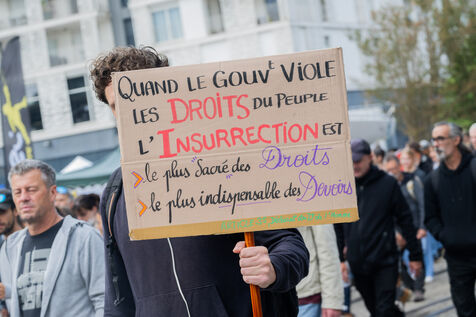 QUAND LE GOUVᵗ VIOLE
LES DROITS DU PEUPLE
L'INSURRECTION EST
> le plus "Sacré" des Droits
> le plus indispensable des Devoirs